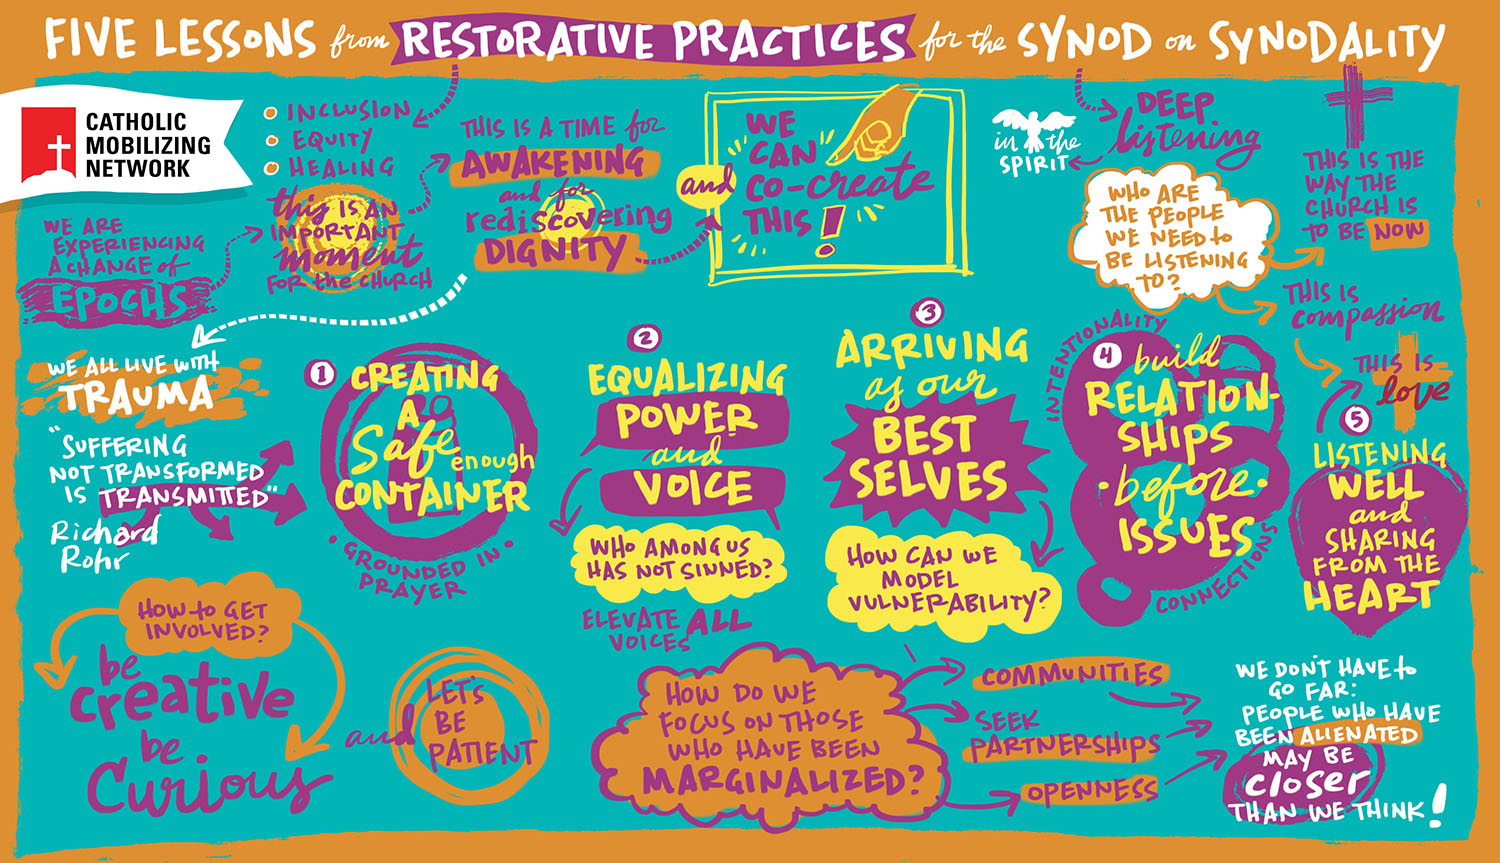 FIVE LESSONS from RESTORATIVE PRACTICES for the SYNOD on SYNODALITY
CATHOLIC
MOBILIZING
NETWORK
INCLUSION
EQUITY
HEALING
WE ARE
EXPERIENCING
A CHANGE of
EPOCHS
this IS AN
IMPORTANT
moment
FOR the CHURCH
THIS IS A TIME for
AWAKENING
and for
rediscovering
DIGNITY
and
WE
CAN
co-create
THIS!
DEEP
listening
in the
SPIRIT
WHO ARE
THE PEOPLE
WE NEED to
BE LISTENING
TO?
THIS IS THE
WAY THE
CHURCH IS
TO BE NOW
THIS IS
compassion
THIS IS
love
WE ALL LIVE WITH
TRAUMA
"SUFFERING
NOT TRANSFORMED
IS TRANSMITTED"
Richard
Rohr
1 CREATING
A
Safe enough
CONTAINER
• GROUNDED IN •
PRAYER
2
EQUALIZING
POWER
and
VOICE
WHO AMONG US
HAS NOT SINNED?
ELEVATE ALL
VOICES
3
ARRIVING
as our
BEST
SELVES
HOW CAN WE
MODEL
VULNERABILITY?
INTENTIONALITY
4 build
RELATION-
SHIPS
• before •
ISSUES
CONNECTIONS
5
LISTENING
WELL
and
SHARING
FROM THE
HEART
HOW to GET
INVOLVED?
be
creative
be
curious
and
LET'S
BE
PATIENT
HOW DO WE
FOCUS ON THOSE
WHO HAVE BEEN
MARGINALIZED?
COMMUNITIES
SEEK
PARTNERSHIPS
OPENNESS
WE DON'T HAVE to
GO FAR:
PEOPLE WHO HAVE
BEEN ALIENATED
MAY BE
closer
THAN WE THINK!